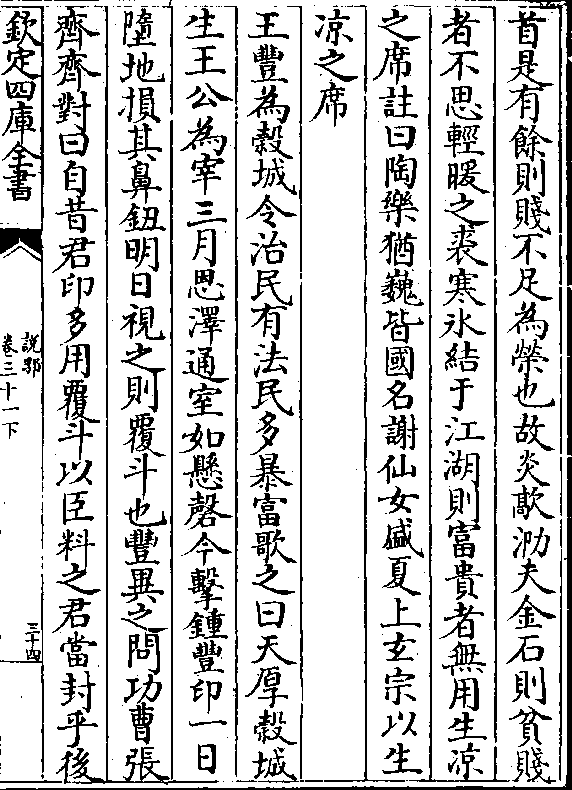 首是有餘則賤不足為榮也故炎歊泐夫金石則貧賤
者不思輕暖之裘寒氷結于江湖則富貴者無用生凉
之席註曰陶樂猶巍皆國名謝仙女盛夏上玄宗以生
凉之席
王豐為穀城令治民有法民多暴富歌之曰天厚穀城
生王公為宰三月恩澤通室如懸磬今擊鍾豐印一日
墮地損其鼻鈕明日視之則覆斗也豐異之問功曹張
齊齊對曰自昔君印多用覆斗以臣料之君當封乎後
欽定四庫全書
說郛
卷三十一下
三十四